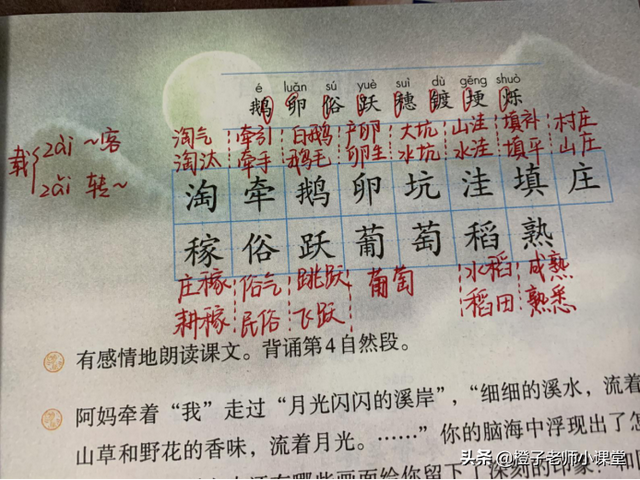 é luǎn sú yuè suì dù gěng shuò
鹅 卵 俗 跃 穗 镀 埂 烁
淘气 牵引 白鹅 产卵 大坑 山洼 填补 村庄
淘汰 牵手 鹅毛 卵生 水坑 水洼 填平 山庄
载 zài ~客
zǎi 转~
淘 牵 鹅 卵 坑 洼 填 庄
稼 俗 跃 葡 萄 稻 熟
庄稼 俗气 跳跃 葡萄 水稻 成熟
耕稼 民俗 飞跃 稻田 熟悉
有感情地朗读课文。背诵第4自然段。
阿妈牵着“我”走过“月光闪闪的溪岸”，“细细的溪水，流着
山草和野花的香味，流着月光。……”你的脑海中浮现出了怎
还有哪些画面给你留下了深刻的印象？和同
头条@橙子老师小课堂